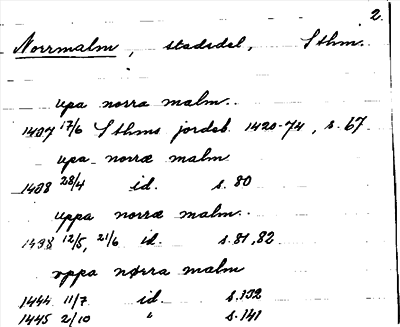 2.
Norrmalm, stadsdel, Sthm.
upa norra malm.
1437 17/6 Sthms jordeb. 1420-74, s. 67
upa norræ malm
1438 28/4 id. s. 80
uppa norræ malm.
1438 12/5, 21/6 id. s. 81, 82
oppa nørra malm
1444 11/7 id. s. 192
1445 2/10 " s. 141